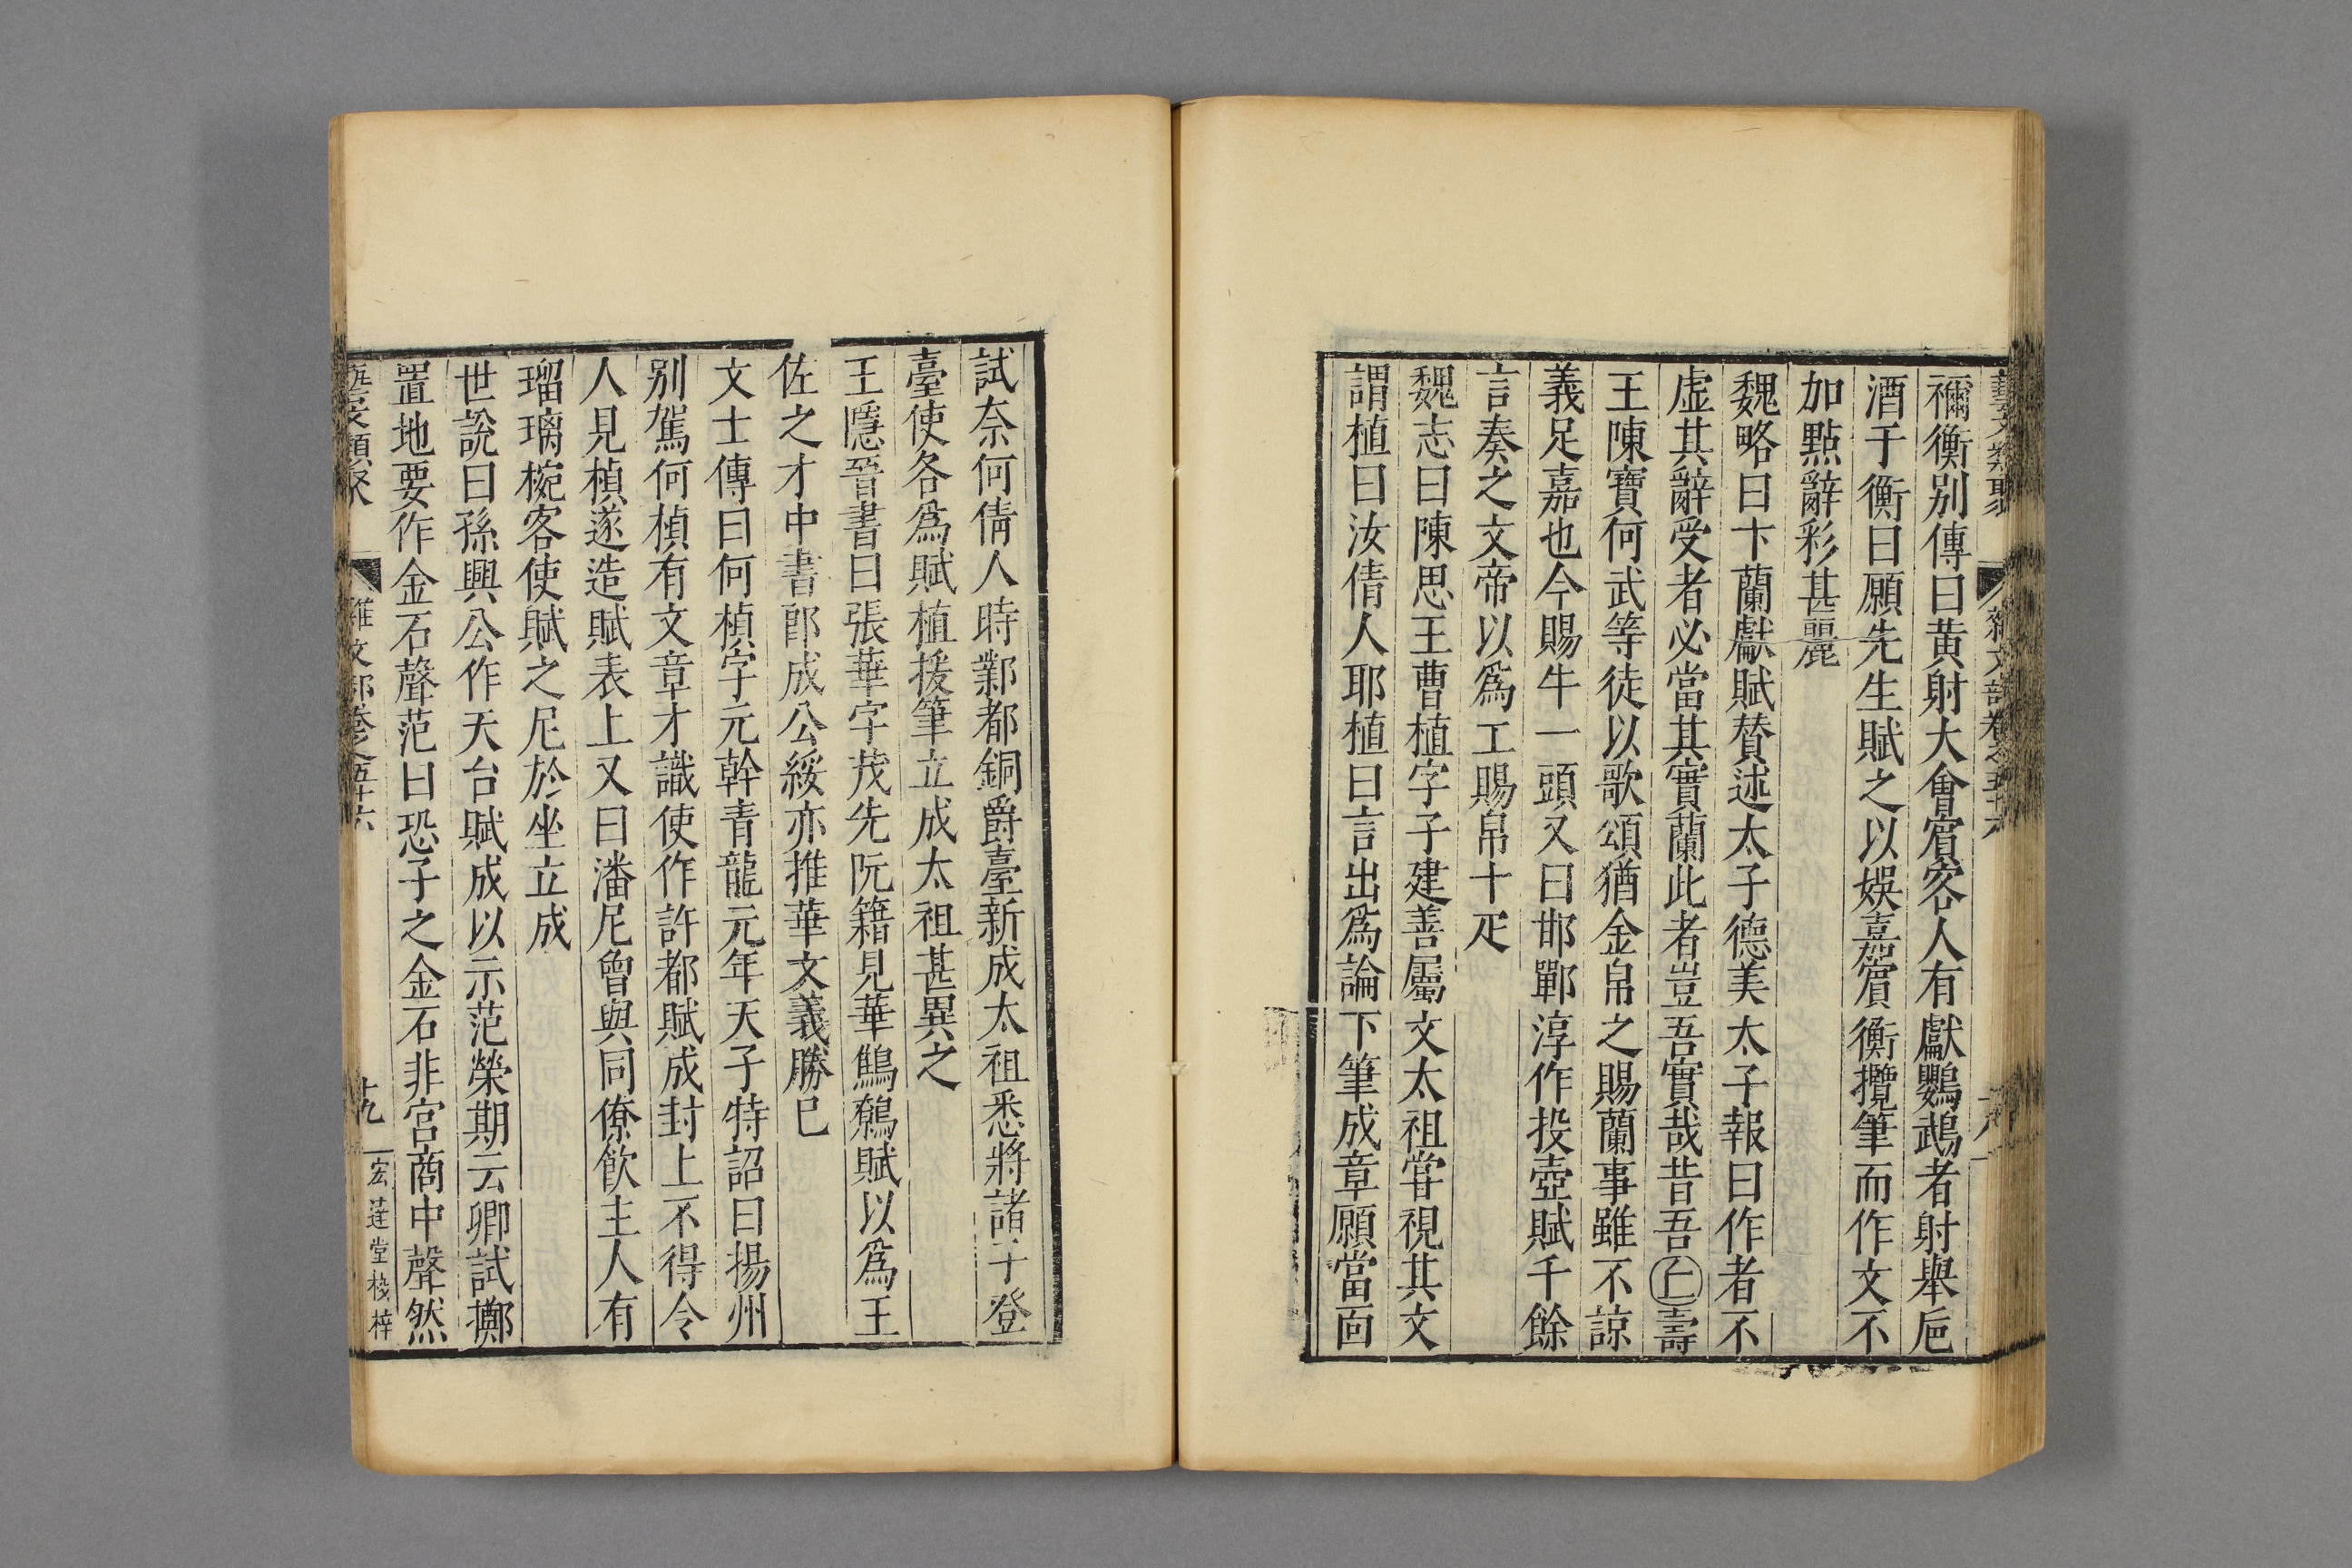 禰衡別傳曰黄射大會賓客人有獻鸚鵡者射舉卮
酒于衡曰願先生賦之以娛嘉賓衡攬筆而作文不
加點辭彩甚麗
魏略曰卞蘭獻賦賛述太子德美太子報曰作者不
虛其辭受者必當其實蘭此者豈吾實哉昔吾丘壽
王陳寶何武等徒以歌頌猶金帛之賜蘭事雖不諒
義足嘉也今賜牛一頭又曰邯鄲淳作投壺賦千餘
言奏之文帝以爲工賜帛十疋
魏志曰陳思王曹植字子建善屬文太祖甞視其文
謂植曰汝倩人耶植曰言出爲論下筆成章願當面
試奈何倩人時鄴都銅爵臺新成太祖悉將諸子登
臺使各爲賦植援筆立成太祖甚異之
王隱晉書曰張華字茂先阮籍見華鷦鷯賦以爲王
佐之才中書郎成公綏亦推華文義勝已
文士傳曰何楨字元幹青龍元年天子特詔曰揚州
别駕何楨有文章才識使作許都賦成封上不得令
人見楨遂造賦表上又曰潘尼曾與同僚飲主人有
瑠璃椀客使賦之尼於坐立成
世說曰孫興公作天台賦成以示范榮期云卿試擲
置地要作金石聲范曰恐子之金石非宮商中聲然
藝文類聚 雜文部卷之五十六 十九 宏達堂棧梓